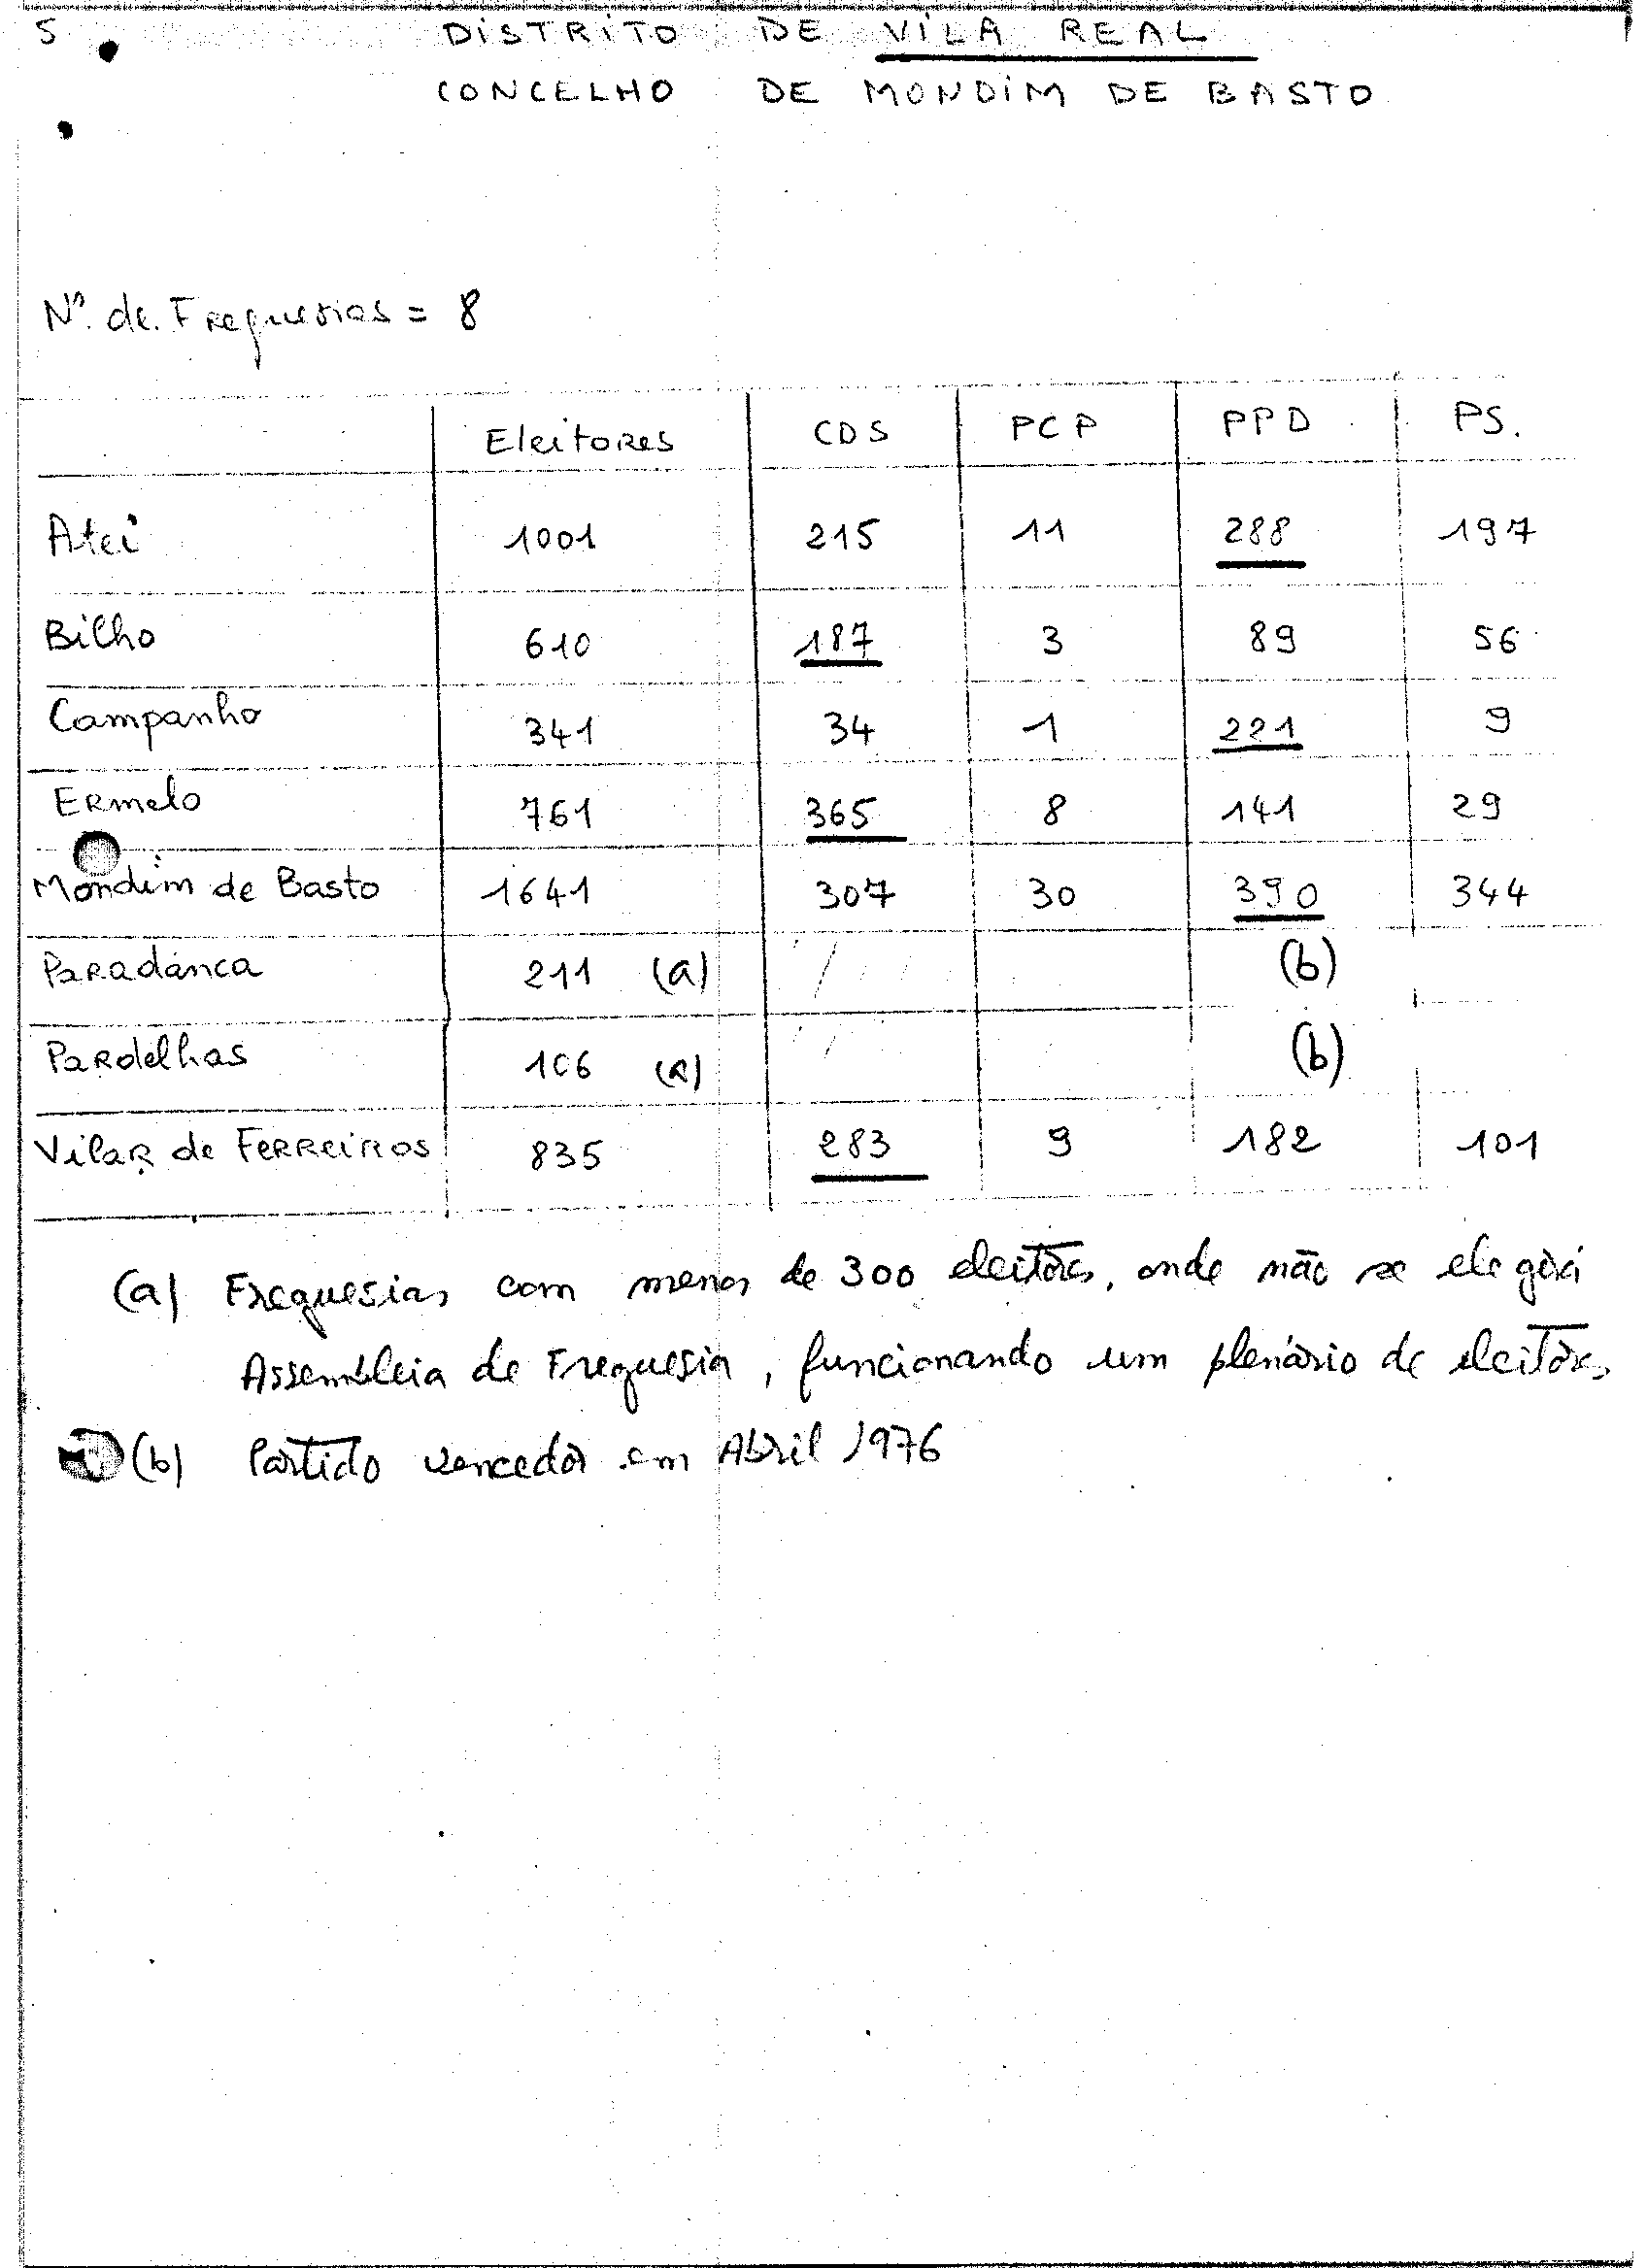 5
DISTRITO DE VILA REAL
CONCELHO DE MONDIM DE BASTO
Nº. de. Freguesias = 8
Eleitores CDS PCP PPD PS.
Atei 1001 215 11 288 197
Bilho 610 187 3 89 56
Campanho 341 34 1 221 9
Ermelo 761 365 8 141 29
Mondim de Basto 1641 307 30 390 344
Paradança 211 (a) (b)
Pardelhas 106 (a) (b)
Vilar de Ferreiros 835 283 9 182 101
(a) Freguesias com menos de 300 eleitores, onde não se elegerá
Assembleia de Freguesia, funcionando um plenário de eleitores
(b) Partido vencedor em Abril 1976